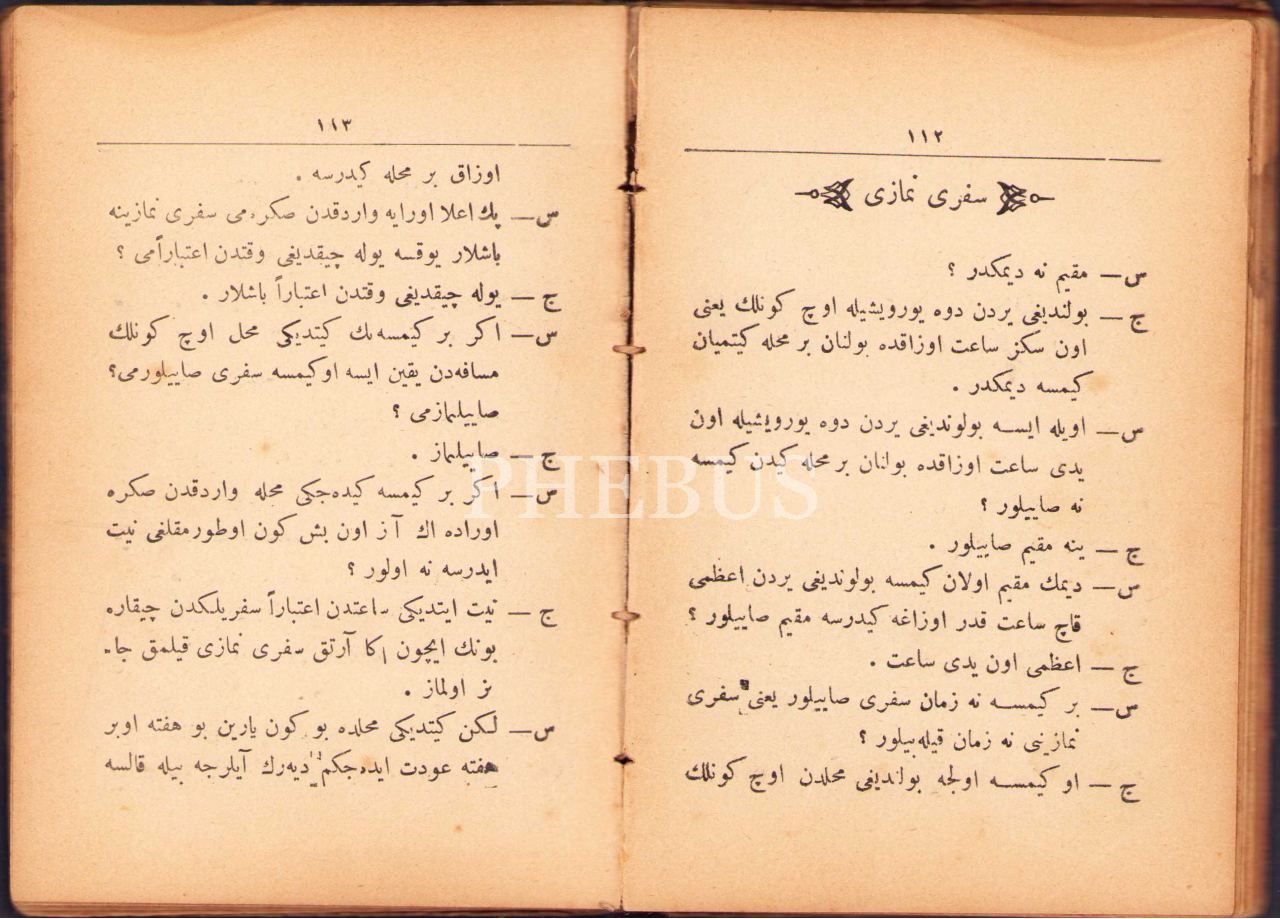 ١١٢
سفری نمازی
س — مقیم نه دیمکدر ؟
ج — بولندیغی یردن دوه یورویشیله اوچ کونلك یعنی
اون سکز ساعت اوزاقده بولنان بر محله کیتمیان
کیمسه دیمکدر .
س — اویله ایسه بولوندیغی یردن دوه یورویشیله اون
یدی ساعت اوزاقده بولنان بر محله کیدن کیمسه
نه صاییلور ؟
ج — ینه مقیم صاییلور .
س — دیمك مقیم اولان کیمسه بولوندیغی یردن اعظمی
قاچ ساعت قدر اوزاغه کیدرسه مقیم صاییلور ؟
ج — اعظمی اون یدی ساعت .
س — بر کیمسه نه زمان سفری صاییلور یعنی سفری
نمازینی نه زمان قیله‌بیلور ؟
ج — او کیمسه اولجه بولندیغی محلدن اوچ کونلك
١١٣
اوزاق بر محله کیدرسه .
س — پك اعلا اورایه واردقدن صکره‌می سفری نمازینه
باشلار یوقسه یوله چیقدیغی وقتدن اعتباراًمی ؟
ج — یوله چیقدیغی وقتدن اعتباراً باشلار .
س — اکر بر کیمسه‌نك کیتدیکی محل اوچ کونلك
مسافه‌دن یقین ایسه اوکیمسه سفری صاییلورمی؟
صاییلمازمی ؟
ج — صاییلماز .
س — اکر بر کیمسه کیده‌جکی محله واردقدن صکره
اوراده اك آز اون بش کون اوطورمقلغی نیت
ایدرسه نه اولور ؟
ج — نیت ایتدیکی ساعتدن اعتباراً سفریلکدن چیقار،
بونك ایچون اکا آرتق سفری نمازی قیلمق جا-
ئز اولماز .
س — لکن کیتدیکی محلده بو کون یارین بو هفته اوبر
هفته عودت ایده‌جکم دیه‌رك آیلرجه بیله قالسه
PHEBUS